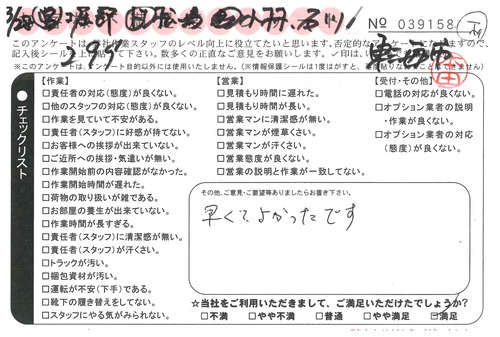 No 039158
このアンケートは
社作業スタッフのレベル向上に役立てたいと思います。否定的なアンケートに
記入後シール
数多くの正直なご意見をお願いします。
※このアンケートは、アンケート目的以外には使用いたしません。(※情報保護シールは1度はがすと、
チェックリスト
【作業】
□責任者の対応(態度)が良くない。
□他のスタッフの対応(態度)が良くない。
□作業を見ていて不安がある。
□責任者(スタッフ)に好感が持てない。
□お客様への挨拶が出来ていない。
□ご近所への挨拶・気遣いが無い。
□作業開始前の内容確認がなかった。
□作業開始時間が遅れた。
□荷物の取り扱いが雑である。
□お部屋の養生が出来ていない。
□作業時間が長すぎる。
□責任者(スタッフ)に清潔感が無い。
□責任者(スタッフ)が汗くさい。
□トラックが汚い。
□梱包資材が汚い。
□運転が不安(下手)である。
□靴下の履き替えをしてない。
□スタッフにやる気がみられない。
【営業】
□見積もり時間に遅れた。
□見積もり時間が長い。
□営業マンに清潔感が無い。
□営業マンが煙草くさい。
□営業マンが汗くさい。
□営業態度が良くない。
□営業の説明と作業が一致してない。
【受付・その他】
□電話の対応が良くない。
□オプション業者の説明
・作業が良くない。
□オプション業者の対応
(態度)が良くない。
その他、ご意見・ご要望等ありましたらお書き下さい。
早くてよかったです
☆当社をご利用いただきまして、ご満足いただけたでしょうか?
□不満 □やや不満 □普通 □やや満足 ☑満足